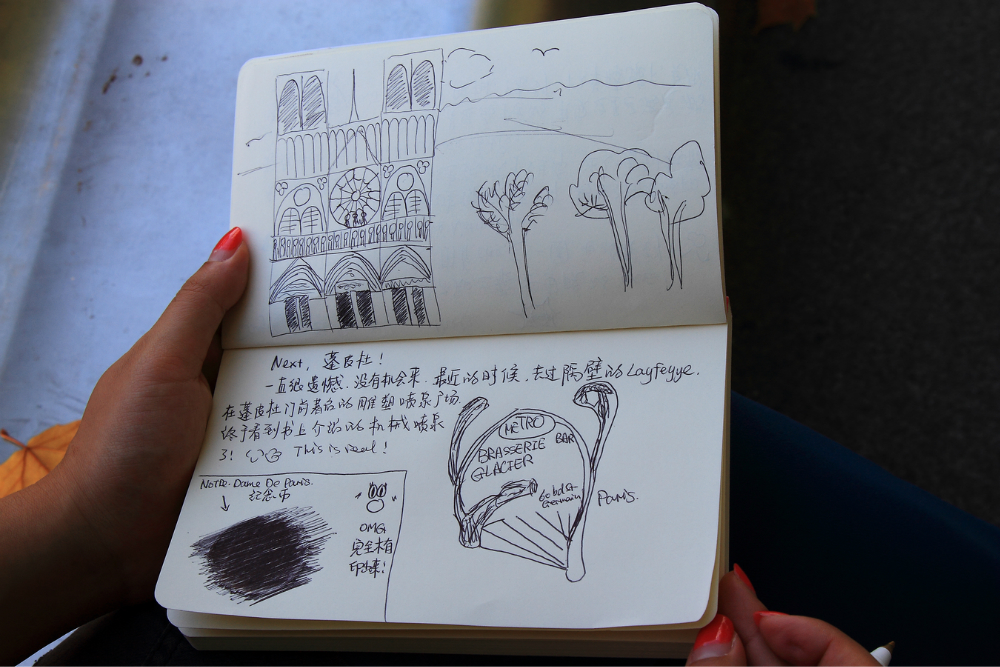 Next, 蓬皮杜!
一直很遗憾.没有机会来.最近的时候,去过隔壁的Layfeyye.
在蓬皮杜门前著名的雕塑喷泉广场.
终于看到书上介绍的机械喷泉
了! This is real!
METRO
BRASSERIE BAR
GLACIER
Germain
Paris.
Notre-Dame De Paris.
纪念币
OMG
完全木有
印出来!